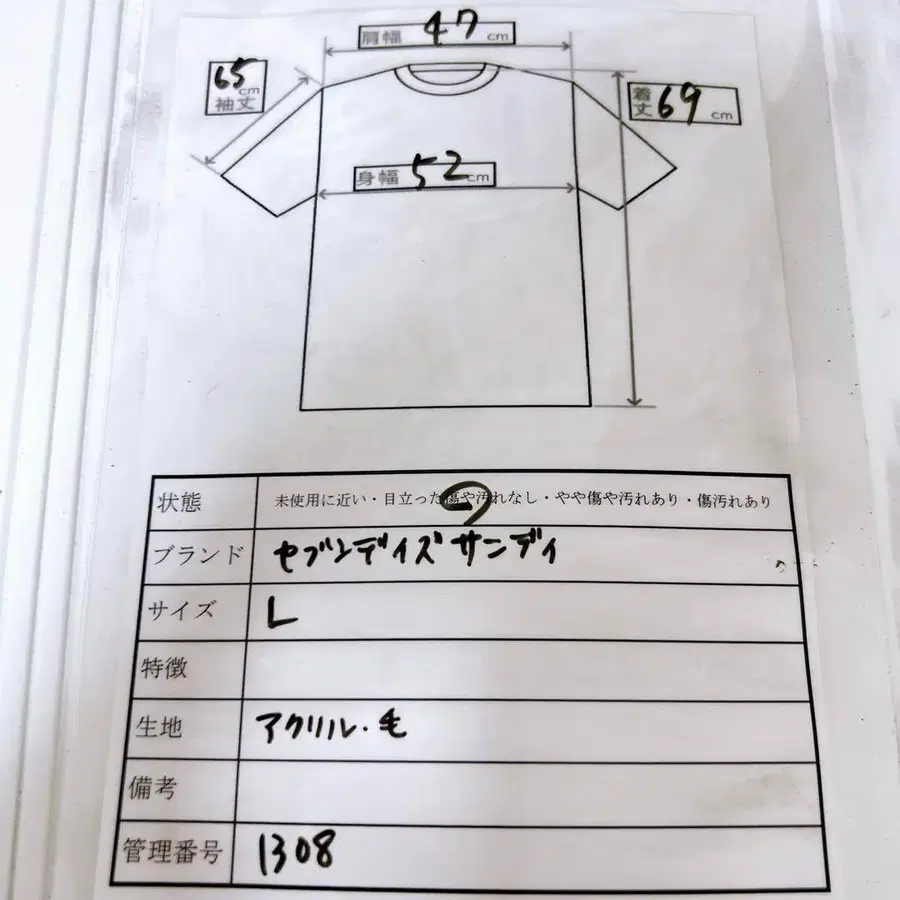 肩幅 47 cm
65 cm
袖丈
着丈 69 cm
身幅 52 cm
状態 未使用に近い・目立った傷や汚れなし・やや傷や汚れあり・傷汚れあり
ブランド セブンデイズサンデイ
サイズ L
特徴
生地 アクリル・毛
備考
管理番号 1308